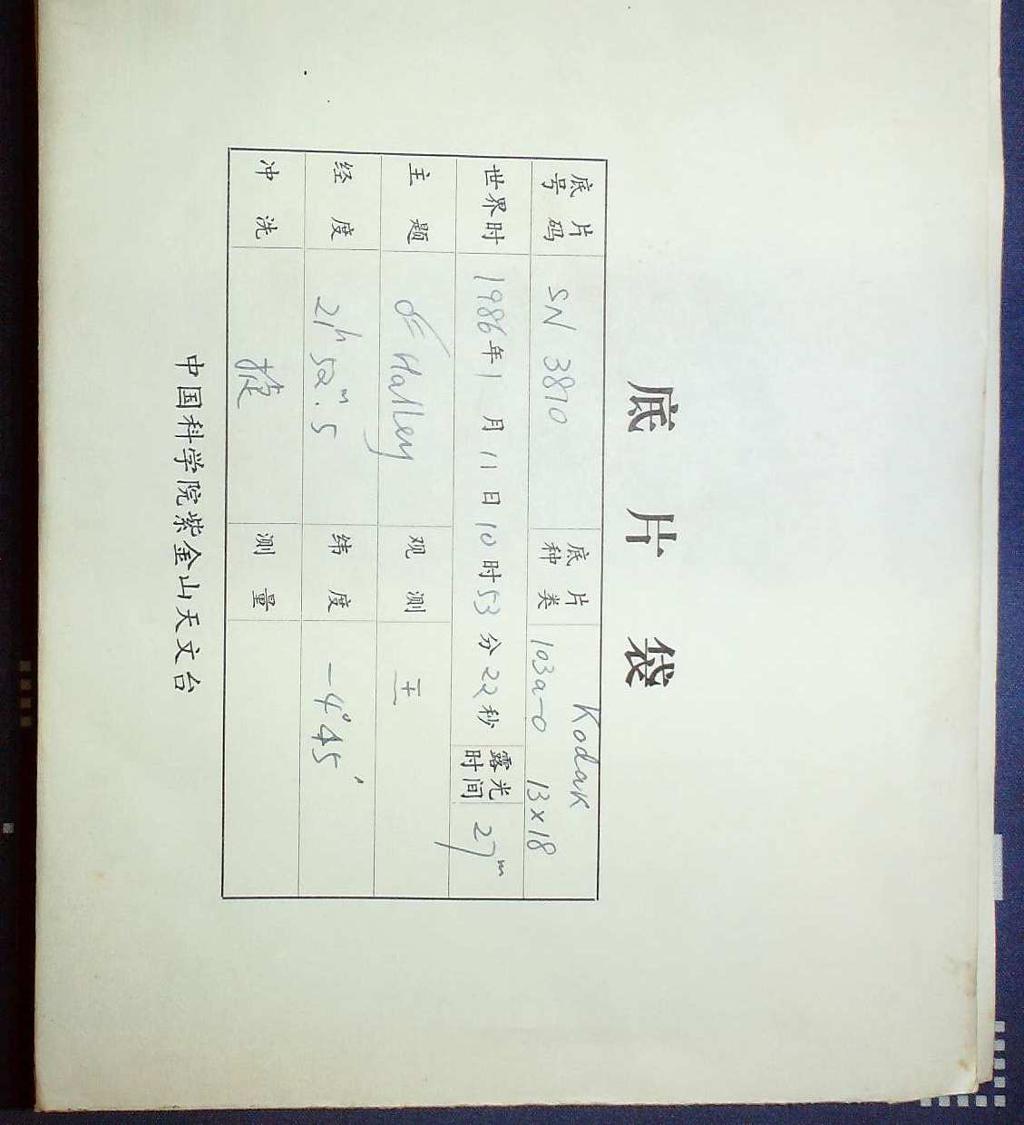 底片袋
底片号码 SN 3810 底片种类 Kodak 103a-O 13×18
世界时 1986年1月11日10时53分22秒 露光时间 27m
主题 Halley 观测 王
经度 21h 52m.5 纬度 -4°45′
冲洗 捷 测量
中国科学院紫金山天文台